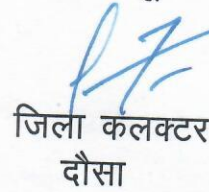 जिला कलक्टर
दौसा